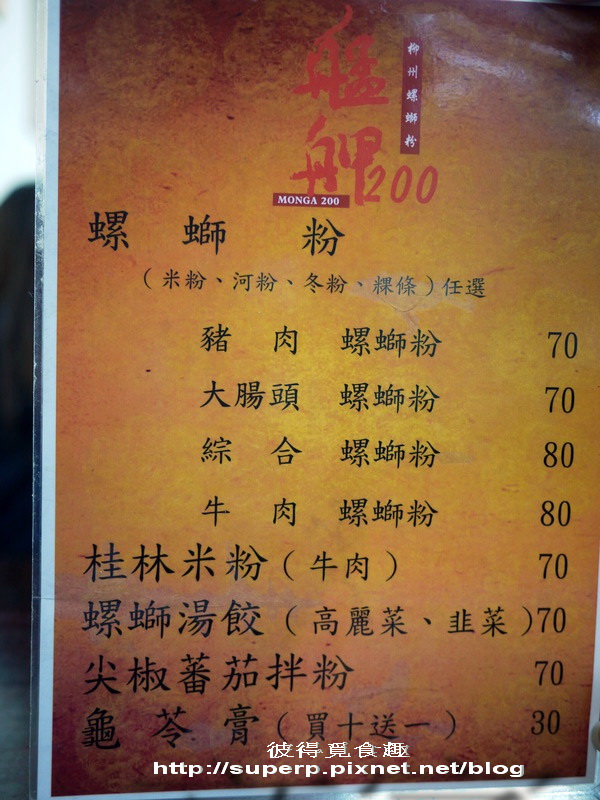 艋舺200
柳州螺螄粉
MONGA 200
螺螄粉
(米粉、河粉、冬粉、粿條)任選
豬肉 螺螄粉 70
大腸頭 螺螄粉 70
綜合 螺螄粉 80
牛肉 螺螄粉 80
桂林米粉(牛肉) 70
螺螄湯餃(高麗菜、韭菜)70
尖椒蕃茄拌粉 70
龜苓膏(買十送一) 30
彼得覓食趣
http://superp.pixnet.net/blog